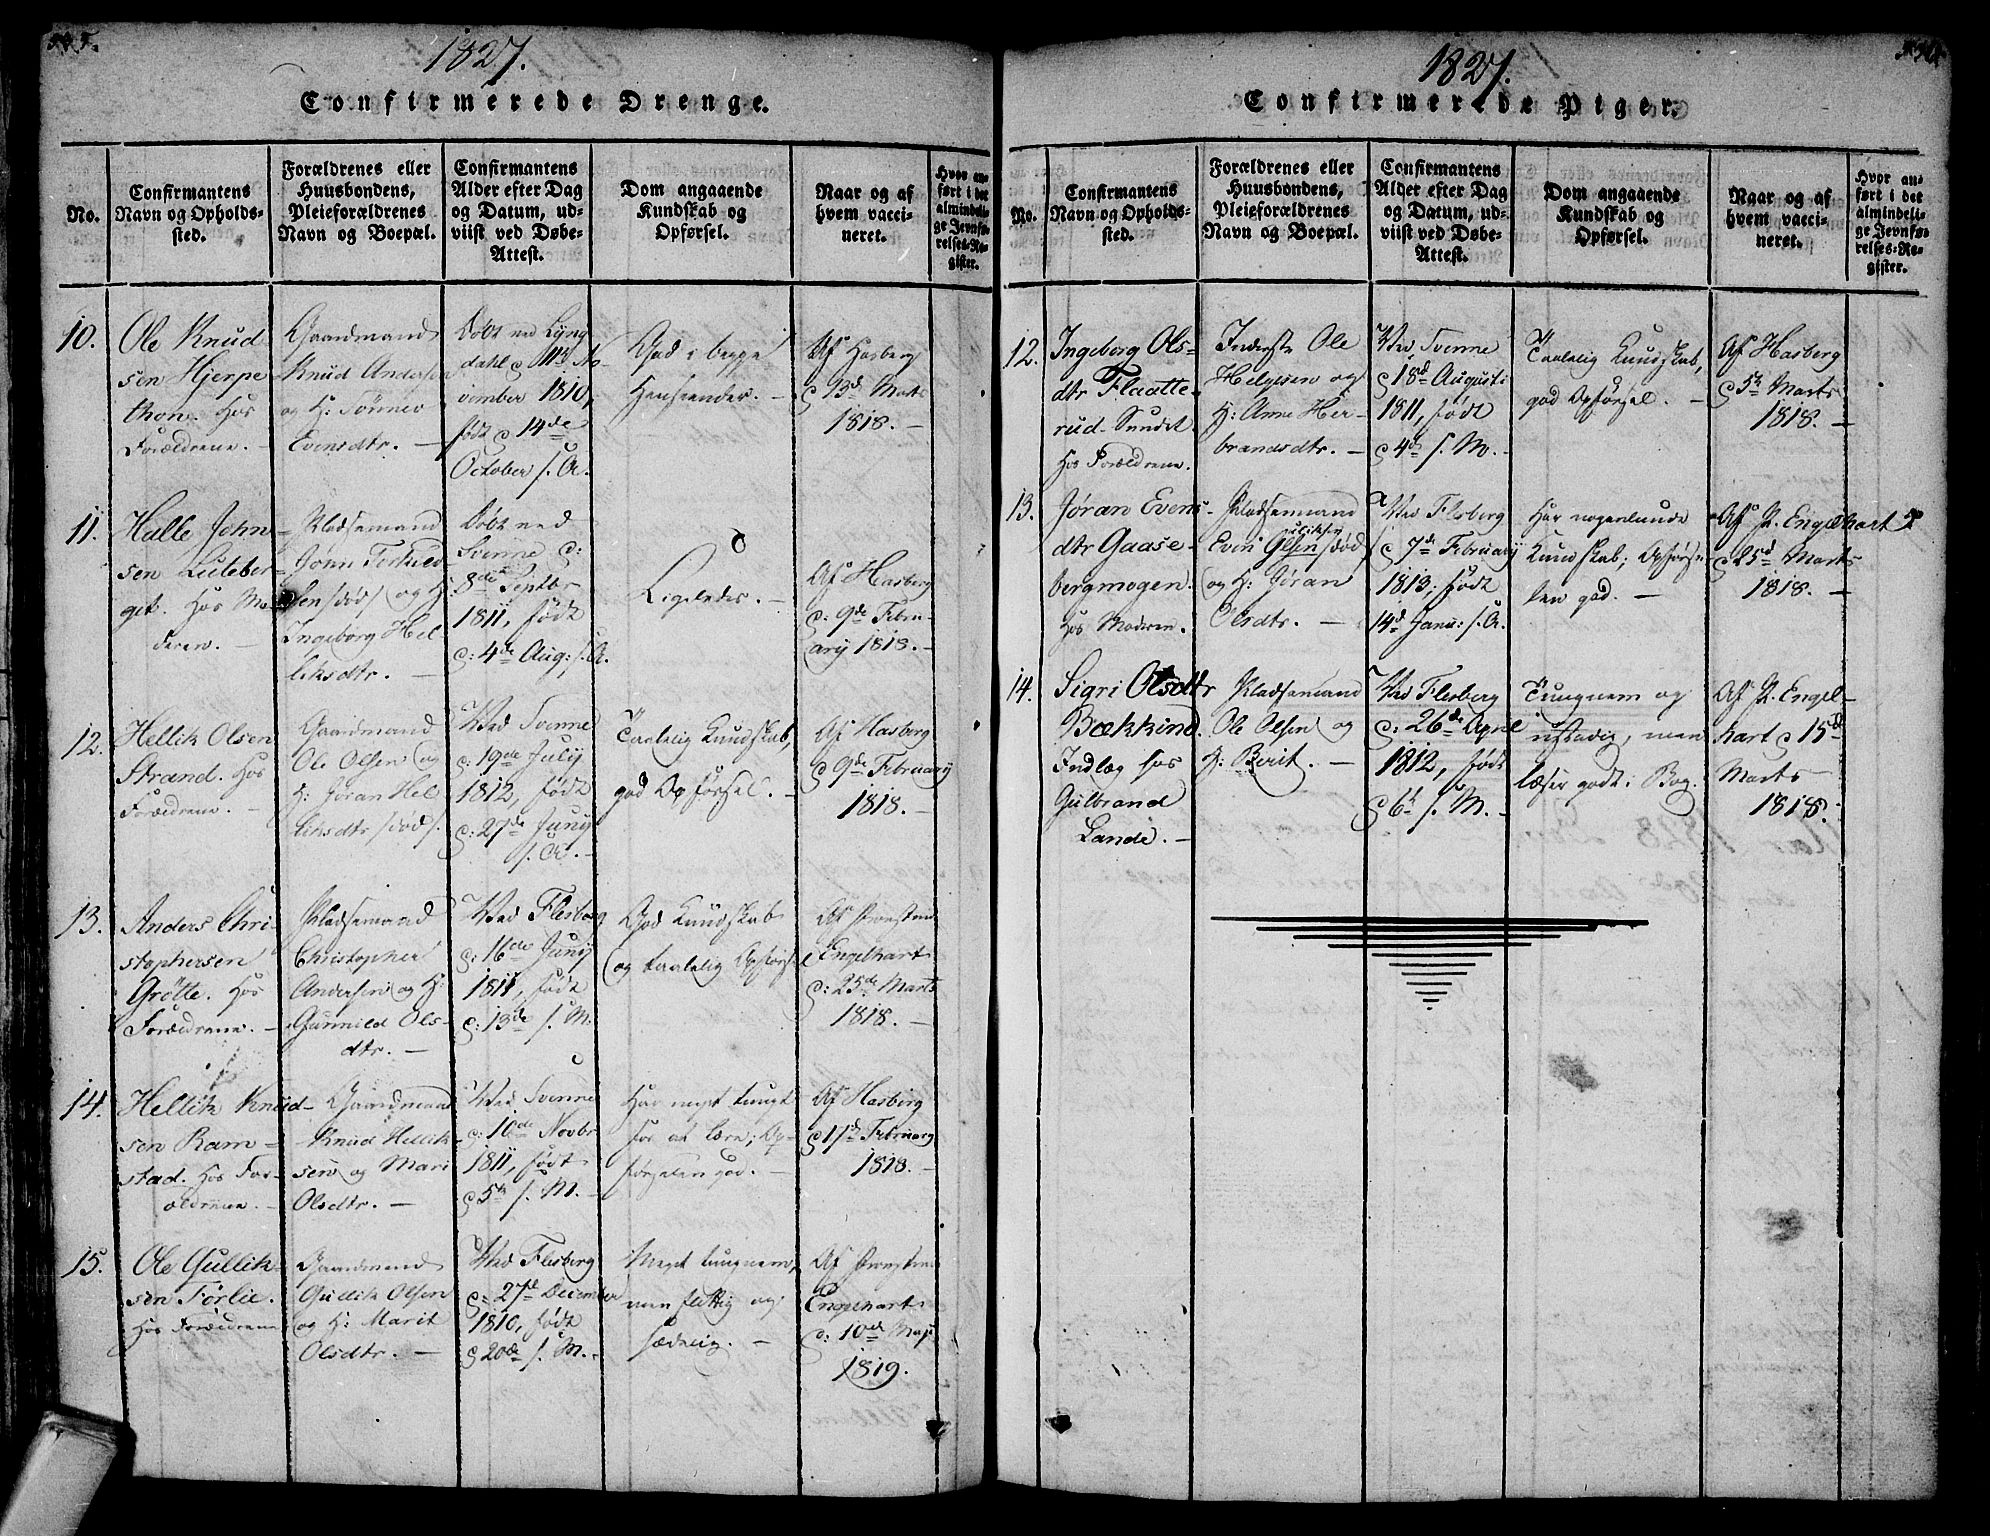 1827.
Confirmerede Drenge.
No.
Confirmantens
Navn og Opholds-
sted.
Forældrenes eller
Huusbondens,
Pleieforældrenes
Navn og Boepæl.
Confirmantens
Alder efter Dag
og Datum, ud-
viist ved Døbe-
Attest.
Dom angaaende
Kundskab og
Opførsel.
Naar og af
hvem vacci-
neret.
Hvor an-
ført i det
almindeli-
ge Jevnfø-
relses-Re-
gister.
10.
Ole Knud
sen Hjerpe
thon. Hos
Forældrene. —
Gaardmand
Knud Andersen
og H: Tønnev
Evensdtr. —
Døbt ved Lyng
dahl 11te No-
vember 1810,
født 14de
October s. A.
God i begge
Henseender. —
Af Hasberg
13d Marts
1818. —
11.
Halle John-
sen Luteber-
get. Hos Mo-
deren. —
Pladsemand
John
sen (død) og H:
Ingeborg Hel-
liksdtr. —
Døbt ved
Svenne d:
8de Septbr
1811, født
d: 4de Aug: s. A.
Ligeledes. —
Af Hasberg
d: 9de Febru-
ary 1818. —
12.
Hellik Olsen
Strand. Hos
Forældrene. —
Gaardmand
Ole Olsen og
H: Jøran Hel
liksdtr (død).
Ved Svenne
d: 19de July
1812, født
d: 27de Juny
s. A. —
Taalelig Kundskab,
god Opførsel. —
Af Hasberg
d 9de February
1818. —
13.
Anders Chri-
stophersen
Grøtte. Hos
Forældrene. —
Pladsemand
Christopher
Andersen og H:
Gunnild Ols-
dtr. —
Ved Flesberg
d: 16de Juny
1811, født
d: 13de s. M.
God Kundskab
og taalelig Opførsel
Af Provsten
Engelhart
d: 25de Marts
1818. —
14.
Hellik Knud-
sen Ram-
stad. Hos For-
ældrene. —
Gaardmand
Knud Hellik-
sen og Mari
Olsdtr. —
Ved Svenne
d: 10de Novbr
1811, født
d 5te s. M. —
Har meget tungt
for at lære; Op-
førselen god. —
Af Hasberg
d 17de February
1818. —
15.
Ole Gullik-
sen Førlie.
Hos Forældrene
Gaardmand
Gullik Olsen
og H: Marit
Olsdtr. —
Ved Flesberg
d: 27de December
1810, født
d 20de s. M. —
Meget tungnem,
men flittig og
sædelig. —
Af Provsten
Engelhart
d: 10de May
1819.
1827.
Confirmerede Piger.
No.
Confirmantens
Navn og Opholds-
sted.
Forældrenes eller
Huusbondens,
Pleieforældrenes
Navn og Boepæl.
Confirmantens
Alder efter Dag
og Datum, ud-
viist ved Døbe-
Attest.
Dom angaaende
Kundskab og
Opførsel.
Naar og af
hvem vacci-
neret.
Hvor an-
ført i det
almindeli-
ge Jevnfø-
relses-Re-
gister.
12.
Ingeborg Ols-
dtr Flaatte-
rud-Sundet.
Hos Forældrene.
Inderste Ole
Helgesen og
H: Anne Her-
brandsdtr. —
Ved Svenne
d 18de Augusti
1811, født
d 4de s. M. —
Taalelig Kundskab,
god Opførsel. —
Af Hasberg
d 5te Marts
1818. —
13.
Jøran Evens-
dtr Gaase-
bergmogen.
Hos Moderen.
Pladsemand
Even Gulliksen (død)
og H: Jøran
Olsdtr. —
Ved Flesberg
d 7de February
1813; født
14de Janu: s. A.
Har nogenlunde
Kundskab; Opførse
len god. —
Af P. Engelhart
d 25de Marts
1818. —
14.
Sigri Olsdtr
Bækkind.
Indlæg hos
Gulbrand
Lande. —
Pladsemand
Ole Olsen og
H: Berit. —
Ved Flesberg
d: 26de April
1812, født
d 6te s. M. —
Tungnem og
ustadig, men
læser godt i Bog.
Af P. Engel-
hart d 15de
Marts
1818.